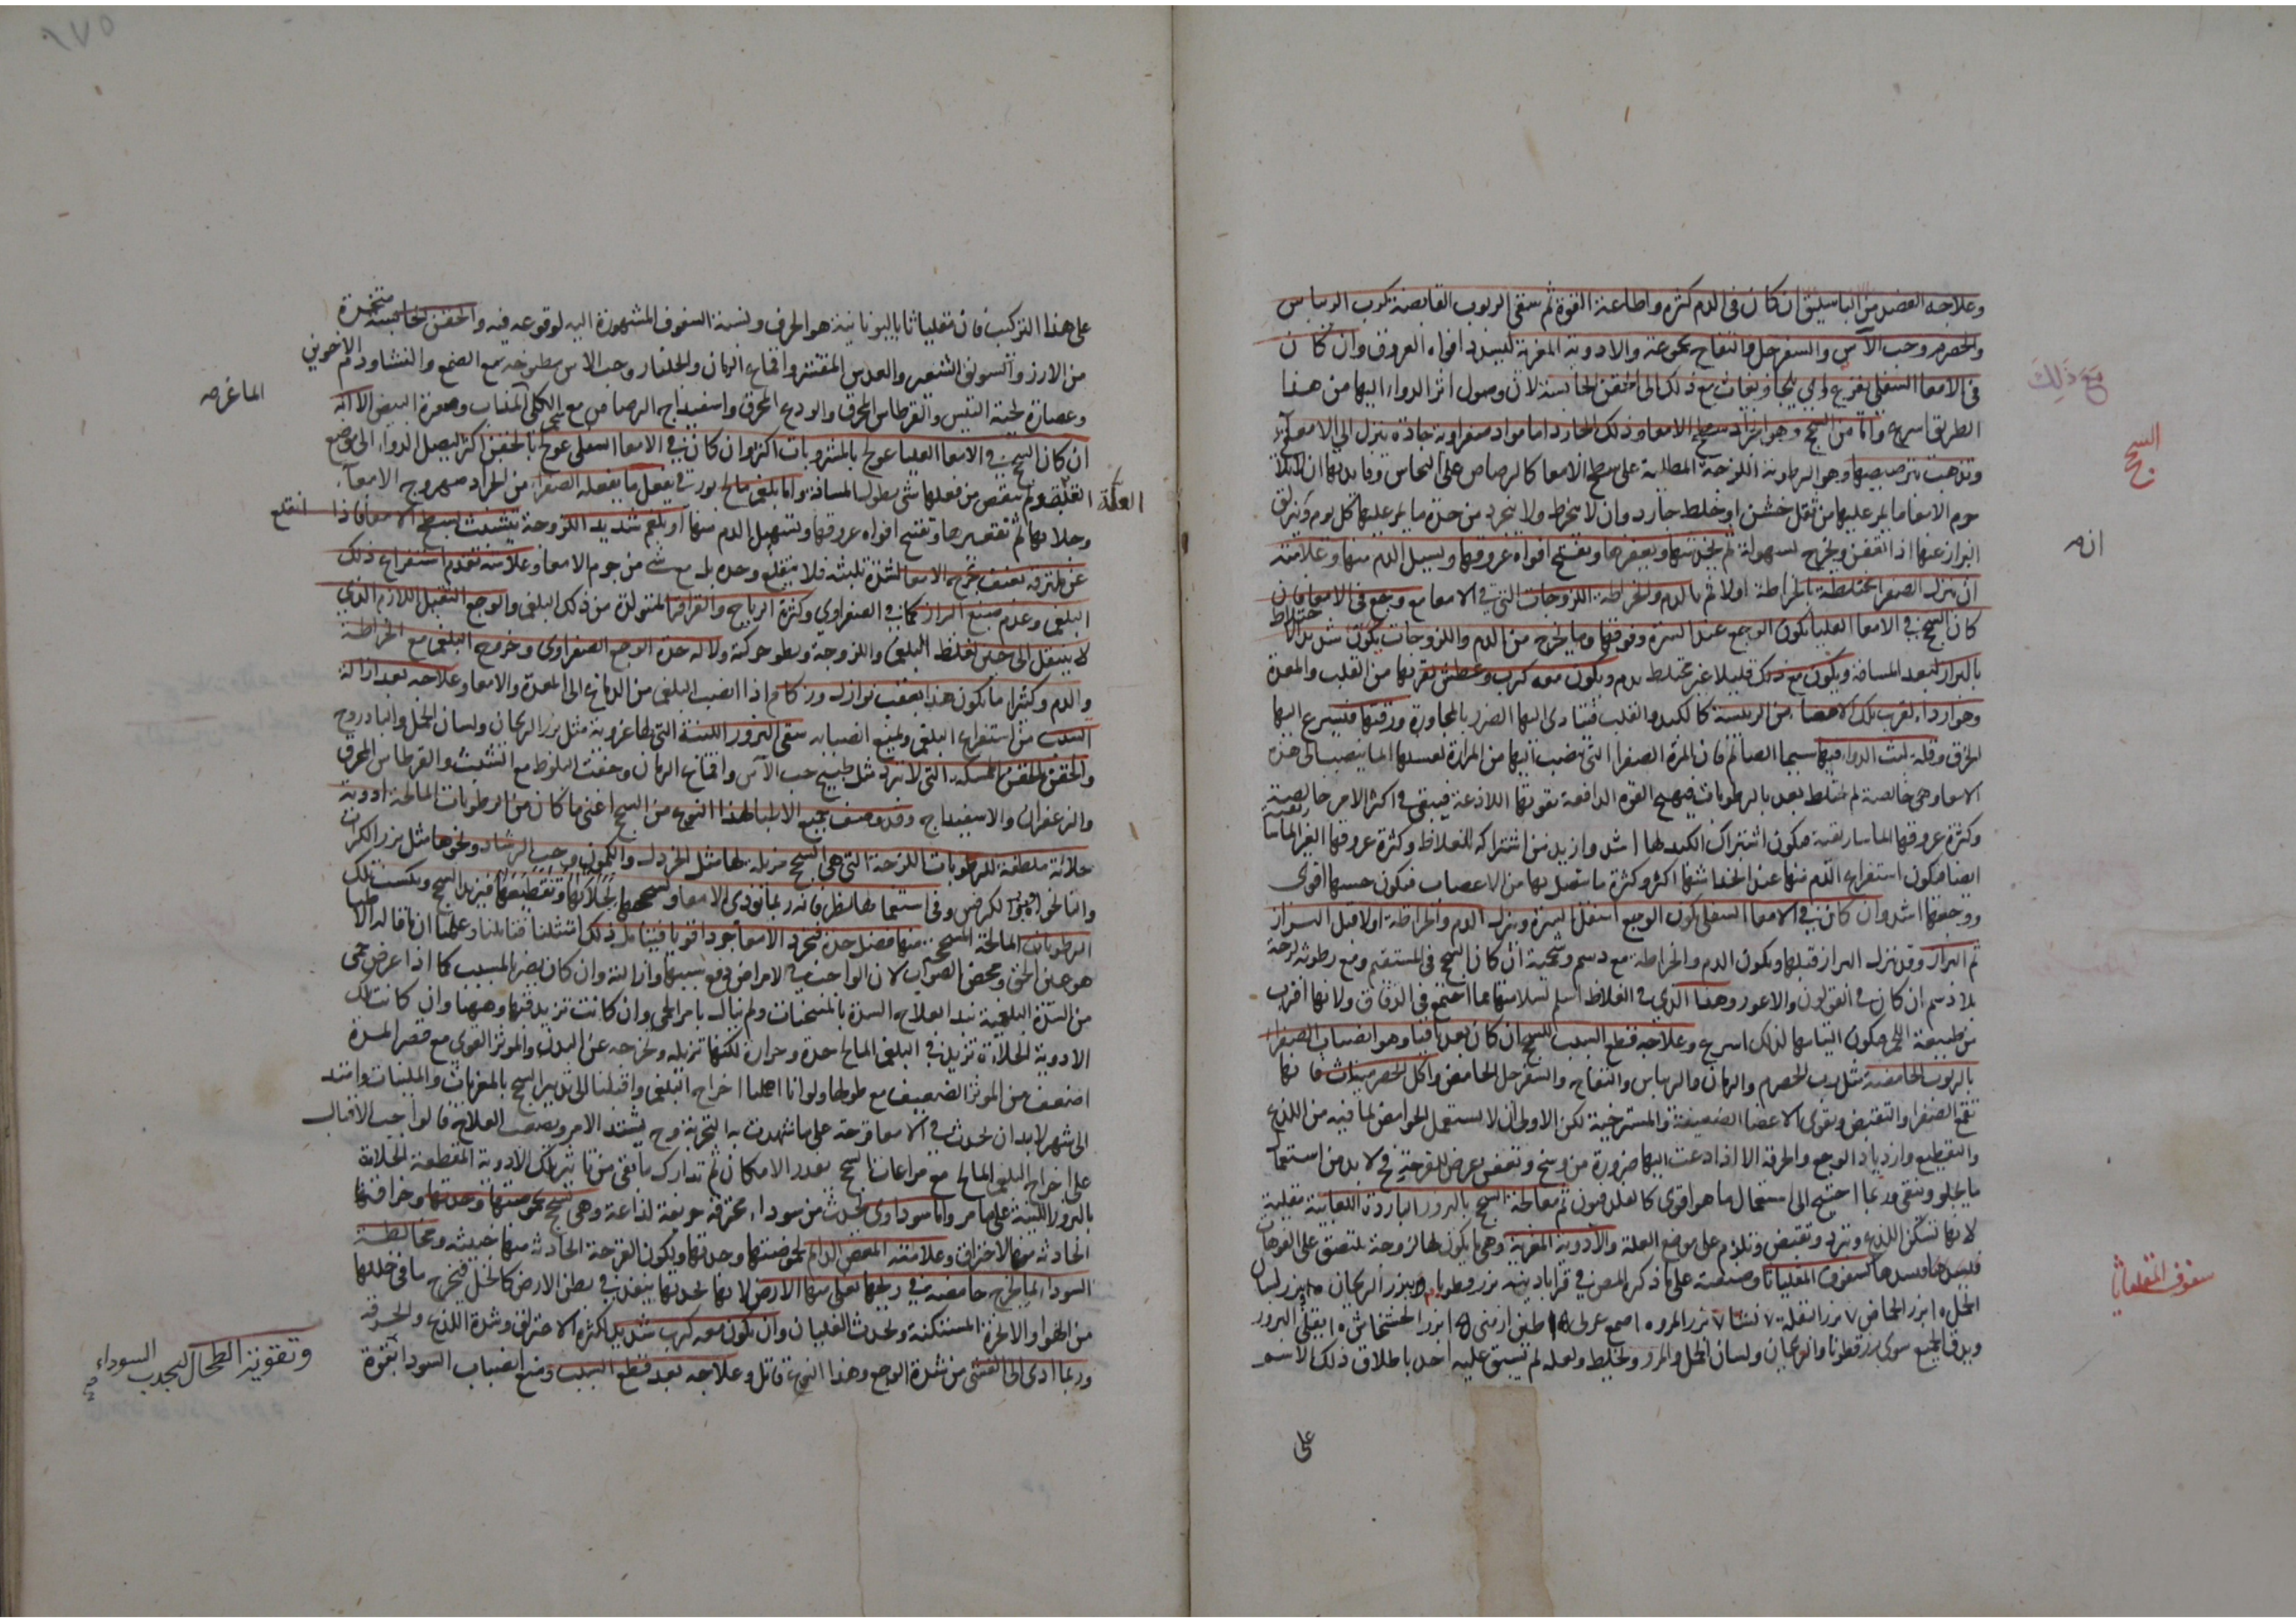 وعلاجه الفصد من الباسليق ان كان فى الدم كثرة واطاعة القوة ثم سقى الربوب القابضة كرب الريباس
والحصرم وحب الآس والسفرجل والتفاح مجموعة والادوية المغرية ليسد افواه العروق وان كان
فى الامعا السفلى يفزع مع ذلك الى الحقن الحابسة لان وصول اثر الدواء اليها من هذا
مع ذلك
الطريق اسرع واما من السحج وهو انجراد سطح الامعا وذلك الحار اما مواد صفراوية حادة تنزل الى الامعاء
السحج
وتذهب وهو الرطوبة اللزجة المطلية على سطح الامعا كالرصاص على النحاس وفايدتها ان
جرم الامعا ما يمر عليها من ثفل خشن او خلط حار وان لا ينخرط ولا ينجرد من حدة ما يمر عليها كل يوم
انه
البراز عنها اذا ويخرج بسهولة ثم ويفتح افواه عروقها ويسيل الدم منها وعلامته
ان تنزل الصفرا مختلطة بالخراطة اولا ثم بالدم والخراطة اللزوجات التى فى الامعا مع وجع فى الامعا فان
كان السحج فى الامعا العليا يكون الوجع عند السرة وفوقها وما يخرج من الدم واللزوجات يكون شديد الاختلاط
بالبراز لبعد المسافة ويكون مع ذلك قليلا غير مختلط بدم ويكون معه كرب وعطش لقربها من القلب والمعدة
وهو اردا لقرب تلك الامعا من الرئيسة كالكبد والقلب فيتادى اليها الضرر بالمجاورة ورقتها فيسرع اليها
الخرق وقلة لبث الدواء فيها سيما الصائم فان المرة الصفرا التى تنصب اليها من المرارة لغسلها انما ينصب الى هذه
الامعا وهى خالصة لم تختلط بعد بالرطوبات فيهيج القوة الدافعة بقوتها اللاذعة فيبقى فى اكثر الامر خالصة
وكثرة عروقها الماساريقية فيكون اشتراك الكبد لها اشد وازيد من اشتراكه للغلاظ وكثرة عروقها الغير الماساريقية
ايضا فيكون استفراغ الدم منها عند انخداشها اكثر وكثرة ما يتصل بها من الاعصاب فيكون حسها اقوى
ووجعها اشد وان كان فى الامعا السفلى يكون الوجع اسفل السرة وينزل الدم والخراطة اولا قبل البراز
ثم البراز وقد ينزل البراز قبلها ويكون الدم والخراطة مع دسم وشحمية ان كان السحج فى المستقيم ومع رطوبة لزجة
بلا دسم ان كان فى القولون والاعور وهذا الذى فى الغلاظ اسلم لسلامتها مما اجتمع فى الدقاق ولانها اقرب
من طبيعة اللحم فيكون التيامها لذلك اسرع وعلاجه قطع السبب المسحج ان كان بعد باقيا وهو انصباب الصفرا
بالربوب الحامضة مثل رب الحصرم والرمان والريباس والتفاح والسفرجل الحامض واكل فانها
تقمع الصفرا والتقبض ويقوى الاعضا الضعيفة والمسترخية لكن الاولى ان لا يستعمل الحوامض لما فيه من اللذع
والتقطيع وازدياد الوجع والحرقة الا اذا دعت اليها ضرورة من وسخ وتعفن يعرض للقرحة فح لا بد من استعمال
ما يجلو وينقى وربما احتيج الى استعمال ما هو اقوى كالقلدفيون ثم معالجة السحج بالبزور الباردة اللعابية مقلية
لانها تسكن اللذع وتبرد وتقبض وتلزم على موضع العلة والادوية المغرية وهى ما يكون لها لزوجة يلتصق على الفوهات
فيسدها كسفوف المقلياثا وصنعته على ما ذكر المص فى قرابادينه بزر قطونا بزر الريحان بزر لسان
سفوف المقلياثا
الحمل ١٠ بزر الحماض ٧ بزر البقلة ٧ نشا ٧ بزر المرو ٥ صمغ عربى طين ارمنى بزر الخشخاش ١٠ يقلى البزور
ويدق الجميع سوى بزر قطونا والريحان ولسان الحمل والمرو ويخلط ولعله لم يسبق عليه احد باطلاق ذلك الاسم
على
على هذا التركيب فان مقلياثا باليونانية هو الحرف ونسبة السفوف المشهورة اليه لوقوعه فيه والحقن الحابسة متخذة
من الارز والسويق الشعير والعدس المقشر واقماع الرمان والجلنار وحب الاس مطبوخه مع الصمغ والنشا ودم الاخوين
وعصارة لحية التيس والقرطاس المحرق والودع المحرق واسفيداج الرصاص مع شحم الكلى المذاب وصفرة البيض الا انه
الماغرصه
ان كان السحج فى الامعا العليا عولج بالمشروبات اكثر وان كان فى الامعا السفلى عولج بالحقن اكثر ليصل الدواء الى موضع
العلة بقوة ولم ينقص من فعلها شى بطول المسافة واما بلغمى مالح بورقى يفعل ما يفعله الصفرا من انجراد صهروج الامعا
العلة
وجلائها ثم تقعيرها وتفتح افواه عروقها وتسهيل الدم منها او بلغم شديد اللزوجة يتشبث بسطح الامعا فاذا انقلع
عن بعنف تخرج الامعا لشدة تلبثه فلا ينقلع وحده بل مع شى من جرم الامعا وعلامته تقدم استفراغ ذلك
البلغم وعدم صبغ البراز كما فى الصفراوى وكثرة الرياح والقراقر المتولدة من ذلك البلغم والوجع الثقيل اللازم الذى
لا ينتقل الى حين لغلظ البلغم واللزوجة وبطو حركته ولا له حدة الوجع الصفراوى وخروج البلغم مع الخراطة
والدم وكثيرا ما يكون هذا بعقب نوازل وزكام اذا انصب البلغم من الدماغ الى المعدة والامعا وعلاجه بعد ازالة
السبب من استفراغ البلغم ومنع انصبابه سقى البزور اللينة التى لها غروية مثل بزر الريحان ولسان الحمل والبادروج
والحقن الممسكة التى لا تبرد مثل طبيخ حب الآس واقماع الرمان وجفت البلوط مع الشبث والقرطاس المحرق
والزعفران والاسفيداج وقد وصف جميع الاطبا لهذا النوع من السحج اعنى ما كان من الرطوبات المالحة ادوية
جلائة ملطفة للرطوبات اللزجة التى هى السحج مزيلة لها مثل الخردل والكمون وحب الرشاد ونحوها مثل بزر الكراث
والنانخواه وبزر الكرفس وفى استعمالها نظر فانه ربما تؤذى الامعا وتسحجها لجلائها وتقطيعها فيزيد السحج ويكتسب تلك
الرطوبات المالحة المسحجة منها فضل حدة فيجرد الامعا جردا قويا فينا بل ذلك امتثلنا فتاملنا وعلمنا ان ما قاله الاطبا
هو عين الحق ومحض الصواب لان الواجب فى الامراض دفع سببها وازالته وان كان يضر بالمسبب كما اذا عرض حمى
من السدة البلغمية نبدا بعلاج السدة بالمسخنات ولم نبال بامر الحمى وان كانت تزيد فيها وههنا وان كانت تلك
الادوية الجلاءة تزيد فى البلغم المالح حدة وحرارة لكنها تزيله وتخرجه عن البدن والموثر القوى مع قصر المدة
اضعف من الموثر الضعيف مع طولها ولو انا اهملنا اخراج البلغم واقبلنا الى تدبير السحج بالمغريات والملينات وامتد
الى شهر لا بد ان يحدث فى الامعا قرحة على ما شهدت به التجربة وح يشتد الامر ويصعب العلاج فالواجب الاقبال
على اخراج البلغم المالح مع مراعات السحج بقدر الامكان ثم تدارك ما بقى من تاثير تلك الادوية المقطعة الجلاءة
بالبزور اللينة على ما مر واما سوداوى يحدث من سودا محترقة حريفة لذاعة وهى تسحج بحموضتها وحدتها وحرافتها
الحادثة من الاحتراق وعلامته المغص الدايم لحموضتها وحدتها ويكون القرحة الحادثة منها خبيثه ومخالطة
السودا لما يخرج حامضية فى ريحها يغلى منها الارض لانها لحدتها ينفذ فى بطن الارض كالخل فيخرج ما فى خللها
من الهوا والابخرة المستكنة ويحدث الغليان وان يكون معه كرب شديد لكثرة الاحتراق وشدة اللذع والحرقة
وربما ادى الى الغشى من شدة الوجع وهذا النوع قاتل وعلاجه بعد قطع السبب ومنع انصباب السودا بقوة
وتقوية الطحال ليجذب السوداء